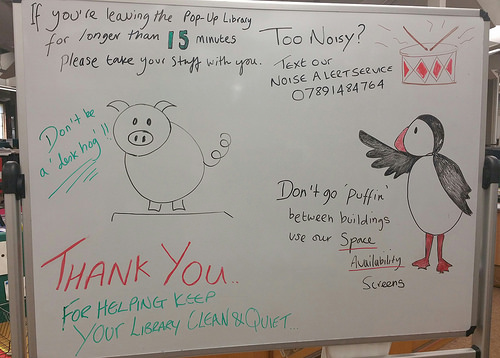 If you're leaving the Pop-Up Library
for longer than 15 minutes
Please take your stuff with you.
Too Noisy?
Text our
Noise Alert service
07891484764
Don't be
a 'desk hog'!!
Don't go 'puffin'
between buildings
use our Space
Availability
Screens
THANK YOU..
FOR HELPING KEEP
YOUR LIBRARY CLEAN & QUIET...